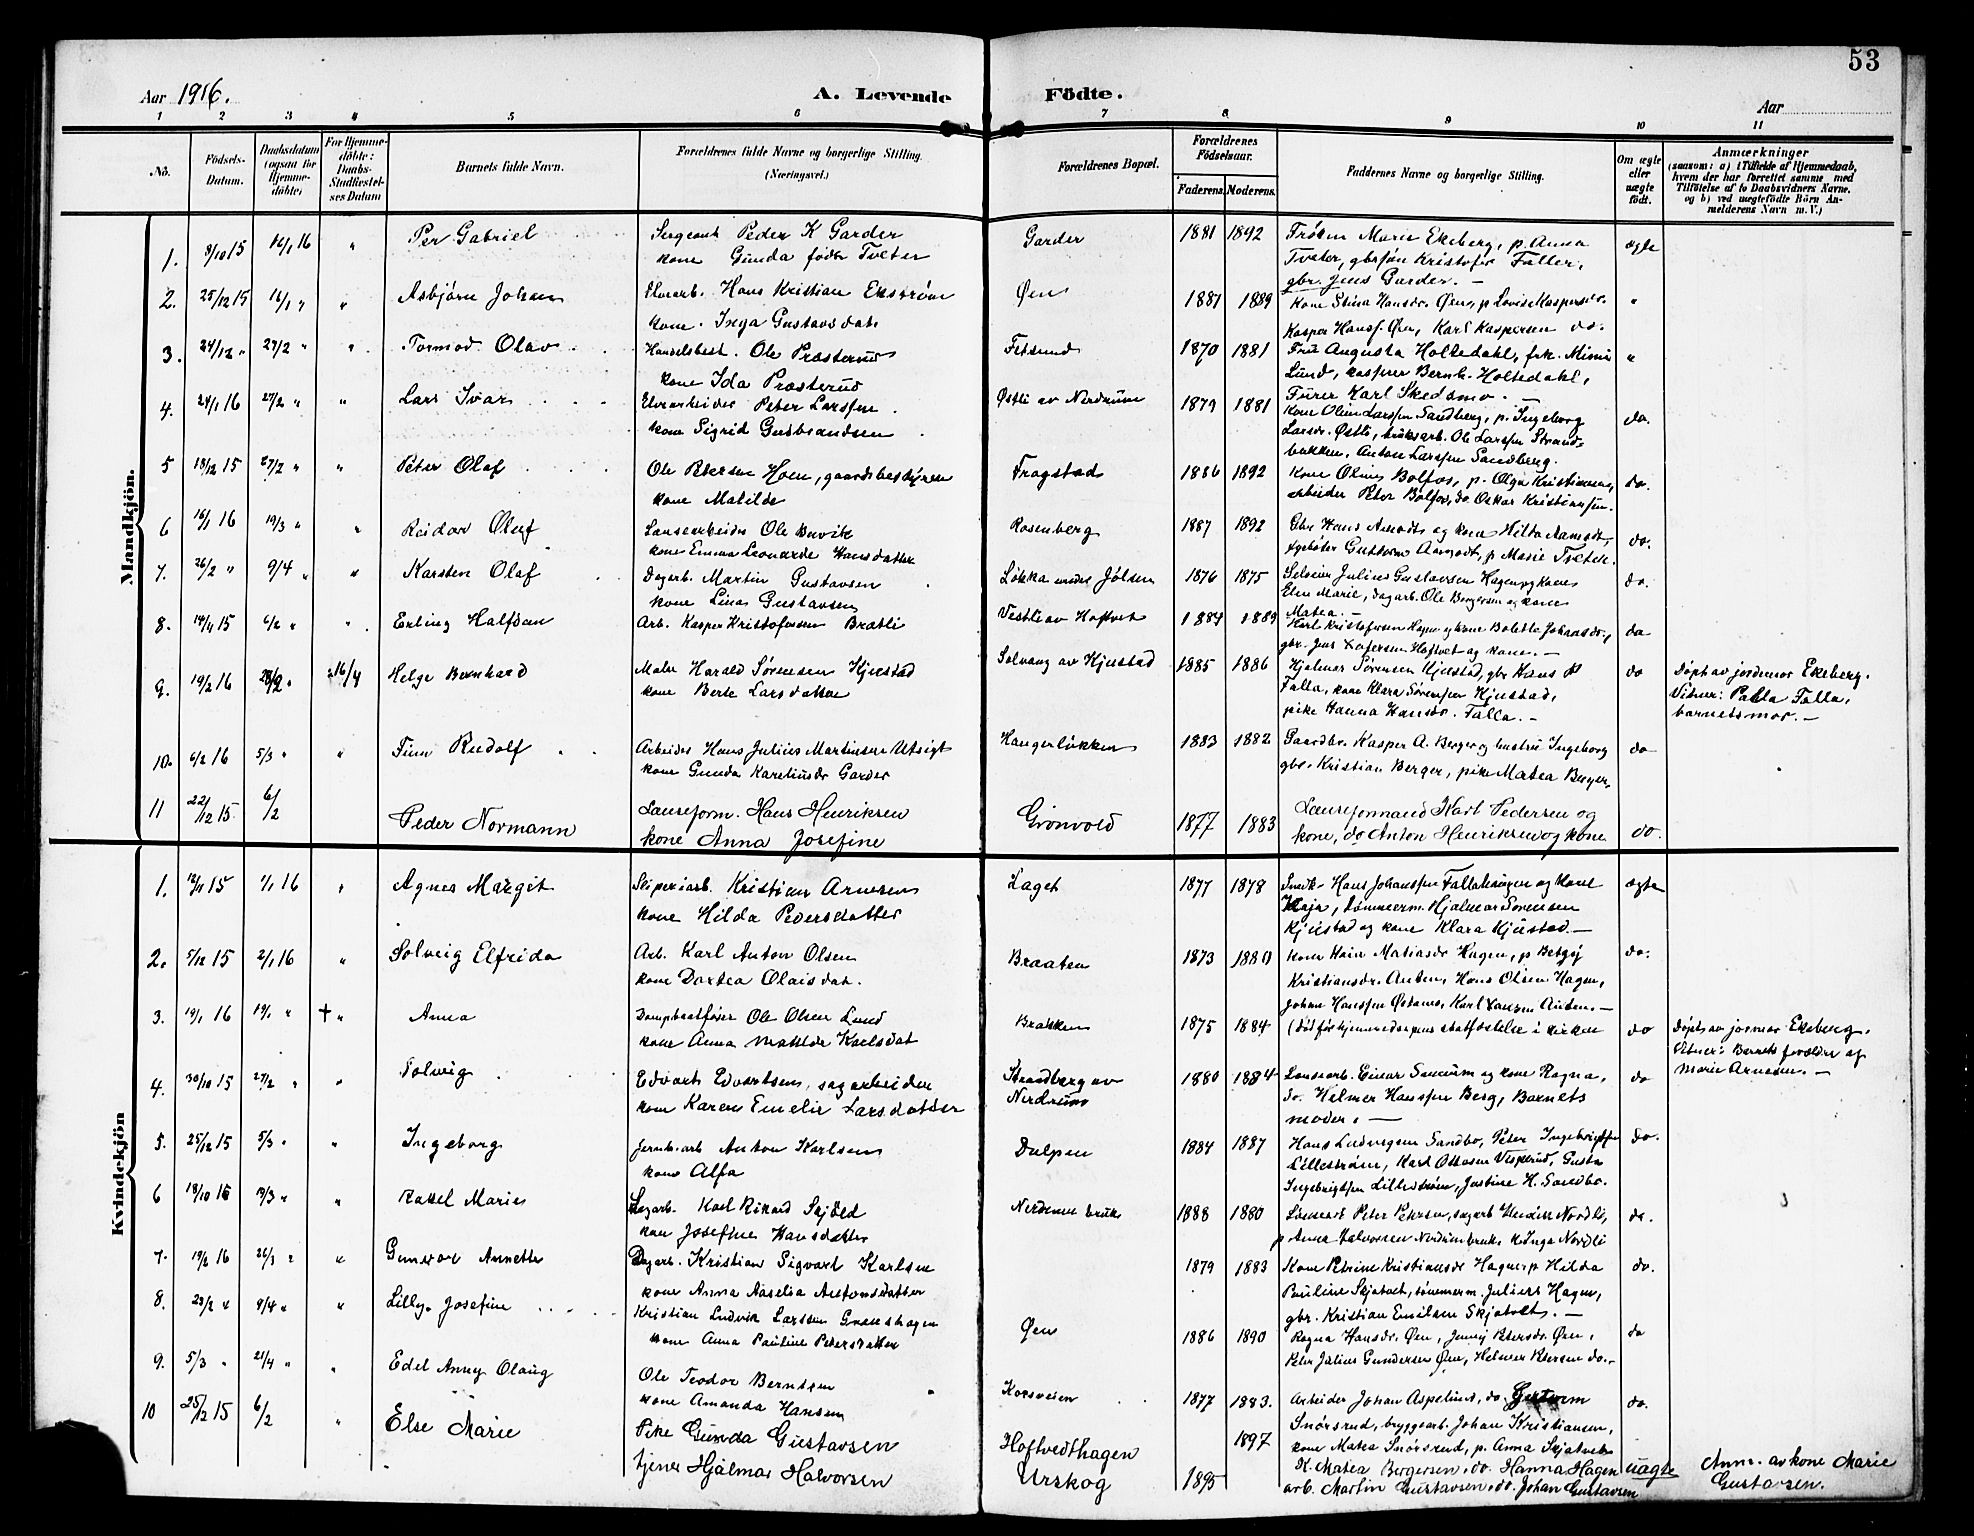 53
Aar 1916.
A. Levende Födte.
Aar
1 2 3 4 5 6 7 8 9 10 11
No.
Födsels-Datum.
Daabsdatum (ogsaa for Hjemmedöbte)
For Hjemmedöbte: Daabs-Stadfæstelses Datum
Barnets fulde Navn.
Forældrenes fulde Navne og borgerlige Stilling. (Næringsvei.)
Forældrenes Bopæl.
Forældrenes Födselsaar.
Faderens. Moderens.
Faddernes Navne og borgerlige Stilling.
Om ægte eller uægte födt.
Anmærkninger
(saasom: a) i Tilfælde af Hjemmedaab, hvem der har forrettet samme med Tilföielse af to Daabsvidners Navne. og b) ved uegtefödte Börn Anmelderens Navn m. V.)
Mandkjön.
1. 8/10 15 16/1 16 " Per Gabriel Sergeant Peder K Garder Garder 1881 1892 Frøken Marie Ekeberg, p. Anna ægte
kone Gunda føder Tveter Tveter, gbrsøn Kristofer Faller,
gbr. Jens Garder. -
2. 25/12 15 16/1 " " Asbjørn Johan Hans Kristian Ekstrøm Øen 1881 1889 Kone Stina Hansdr. Øen, p Lovise Kaspersdr. "
kone. Inga Gustavsdat. Kasper Hansf. Øen, Karl Kaspersen do.
3. 24/12 " 27/2 " " Tormod Olav Handelsbest. Ole Præsterud Fetsund 1870 1881 Fru Augusta Holtedahl, frk. Mimi "
kone Ida Præsterud Lund, kasserer Bernh. Holtedahl,
Furer Karl Skedsmo. -
4. 24/1 16 27/2 " " Lars Ivar Peter Larssen Østli av Nerdrum 1879 1881 Kone Oline Larssen Sandberg, p. Ingeborg do.
kone Sigrid Gudbrandsen Larsdr. Østli, bruksarb. Ole Larssen Strandbakken, Anton Larssen Sandberg.
5 18/12 15 27/2 " " Peter Olaf Ole Petersen Hoen, gaardsbestyrer Frogstad 1886 1892 Kone Oline Bolfos, p. Olga Kristiansen, do.
kone Matilde arbeider Peter Bolfos, do Oskar Kristiansen.
6 16/1 16 19/3 " " Reidar Oluf Lensearbeider Ole Buvik Rosenberg 1887 1892 Gbr Hans Aamodt og kone Hilda Aamodt, do.
kone Emma Leonarde Hansdatter Guttorm Aamodt, p Marie Tveter.
7. 26/2 " 9/4 " " Karsten Olaf Dagarb. Martin Gustavsen Løkka under Jølsen 1876 1875 Selveier Julius Gustavsen Hagen og kone do.
kone Lina Gustavsen Elen Marie, dagarb. Ole Bergersen og kone
Matea. -
8. 14/11 15 6/2 " " Erling Halfdan Arb. Kasper Kristofersen Bratli Vestli av Hoftvet 1884 1889 Karl Kristofersen Hagen og kone Bolette Johansdr., do
gbr. Jens Hoftvet og kone. -
9. 19/2 16 28/2 " 16/4 Helge Bernhard Maler Harald Sørensen Kjustad Solvang av Kjustad 1885 1886 Hjalmar Sørensen Kjustad, gbr Hans P do Døpt av jordmor Ekeberg.
kone Berte Larsdatter Falla, kone Klara Sørensen Kjustad, Vitner: Paula Falla,
pike Hanna Hansdr. Falla. - barnets mor. -
10. 6/2 16 5/3 " " Finn Rudolf Arbeider Hans Julius Martinsen Utsigt Haugerløkken 1883 1882 Gaardbr. Kasper A. Berger og hustru Ingeborg do
kone Gunda Gardes gbr. Kristian Berger, pike Matea Berger.
11 22/12 15 6/2 Peder Normann Lenseform. Hans Henriksen Grönvold 1877 1883 Lenseformand Karl Pedersen og
kone Anna Josefine kone, do Anton Henriksen og kone do.
Kvindekjön
1. 15 1/1 16 " Agnes Margit Sliperiarb. Kristian Arnesen Laget 1877 1878 Hans Johanssen og kone ægte
kone Hilda Pedersdatter Kaja, tømmerm. Hjalmar Sørensen
Kjustad og kone Klara Kjustad. -
2. 5/12 15 2/1 16 " Solveig Elfrida Arb. Karl Anton Olsen Braaten 1873 1880 Kone Matiasdr Hagen, p do.
kone Dortea Olaisdat. Kristiansdr. Anten, Hans Olsen Hagen,
Johan Hanssen, Karl Anten. -
3. 19/1 16 19/1 " † " Anna Dampbaatfører Ole Olsen Lund Brakken 1875 1884 (Død før hjemmedaapens statfæstelse i kirken do Døpt av jormor Ekeberg.
kone Anna Matilde Karlsdat Vitner: Barnets forældre og
Marie Arnesen. -
4. 30/10 15 27/2 " " Solveig Edvart Edvartsen, sagarbeider Strandberg av Nerdrum 1880 1884 Lensearb. Einar og kone Ragna, do
kone Karen Emelie Larsdatter do. Helmer Hanssen Berg, Barnets
moder. -
5. 25/12 15 5/3 " " Ingeborg Jernb.arb Anton Karlsen Dalpen 1884 1887 Hans Ludvigsen Sandbo, Peter Ingebrigtsen do.
kone Alfa Lillestrøm, Karl Ottosen, Gusta
Ingebrigtsen Lillestrøm, Justine H. Sandbo.
6 18/10 15 19/3 " " Rakel Marie Dagarb. Karl Rikard Skjöld Nerdrum bruk 1888 1880 Peter Petersen, sagarb Nordli, do.
kone Josefine Hansdatter p Anna Halvorsen Nerdrumbruk, k Inga Nordli
7. 19/2 16 26/3 " " Gunvor Annette Dagarb. Kristian Sigvart Karlsen 1879 1883 Kone Petrine Kristiansdr Hagen, p Hilda do.
kone Anna Aaselia Antonsdatter Pauline Skjatvet, tømmerm. Julius Hagen,
gbr. Kristian Emilsen Skjatvet. -
8. 23/2 " 9/4 " " Lilly Josefine Kristian Ludvik Larssen Øen 1886 1890 Ragna Hansdr. Øen, Jenny Petersdr. Øen, do
kone Anna Pauline Petersdatter Peter Julius Gundersen Øen, Helmer Petersen do. -
9. 5/3 " 21/4 " " Edel Anny Olaug Ole Teodor Berntsen Korsveien 1877 1883. Arbeider Johan Aspelund, do. Guttorm do.
kone Amanda Hansen Snørsrud, bryggearb. Johan Kristiansen,
kone Matea Snørsrud, p. Anna Skjatvet
10 25/12 15 6/2 " Else Marie Pike Gunda Gustavsen Hoftvedthagen 1897 K. Matea Bergersen, do. Hanna Hagen uægte Anm. av kone Marie
tjener Hjalmar Halvorsen Urskog 1895 arb. Martin Gustavsen, do. Johan Gustavsen Gustavsen.